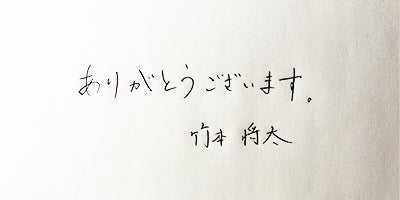 ありがとうございます。
竹本 将太